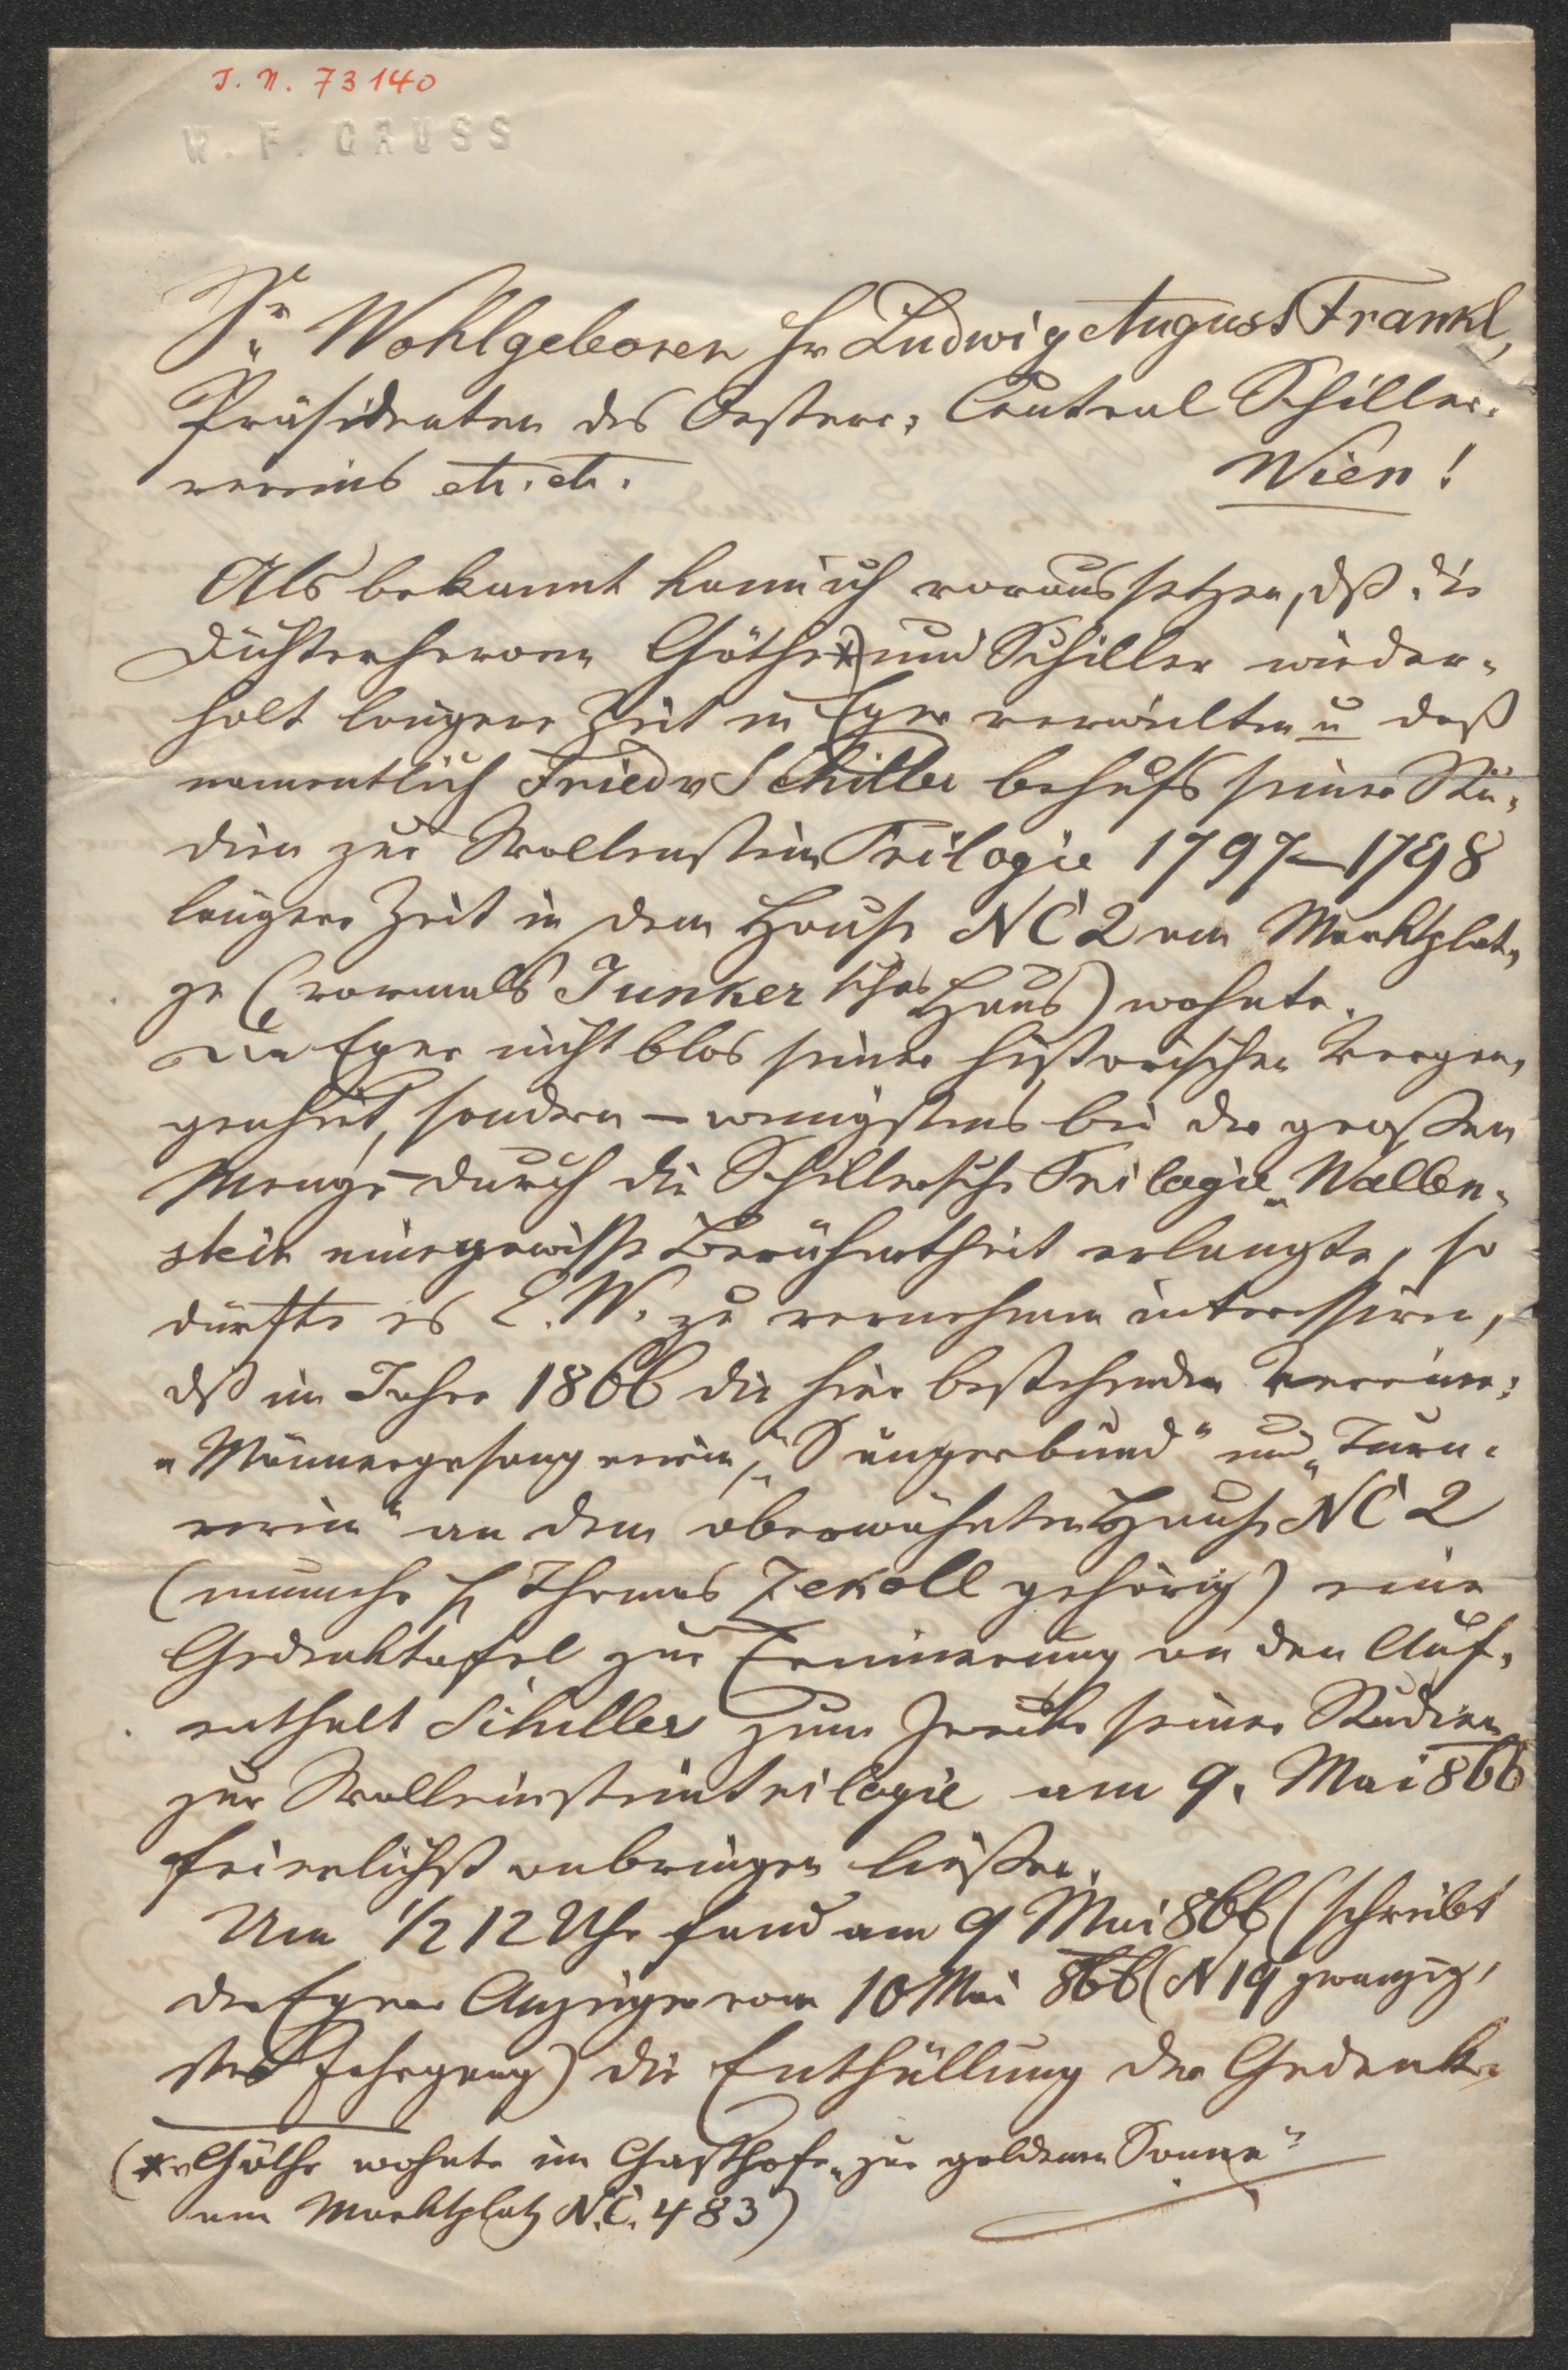 J. N. 73140
W. F. GAUSS
Sr Wohlgeboren Hr Ludwig August Frankl,
Präsidenten des Oesterr. Central Schiller-
vereins etc. etc. Wien!
Als bekannt kann ich voraussetzen, dß die
Dichterheroen Göthe*) und Schiller wieder-
holt längere Zeit in Eger verweilten u daß
namentlich Friedr Schiller behufs seiner Stu-
dien zur Wallenstein Trilogie 1797–1798
längere Zeit in dem Hause NC 2 am Marktplat-
ze (vormals Junker'sches Haus) wohnte.
Da Eger nicht blos seiner historischen Vergan-
genheit, sondern – wenigstens bei der großen
Menge – durch die Schillersche Trilogie „Wallen-
stein eine gewisse Berühmtheit erlangte, so
dürfte es E. W. zu vernehmen interessiren,
dß im Jahre 1866 die hier bestehenden Vereine:
„Männergesangverein,“ „Sängerbund“ und „Turn-
verein“ an dem oberwähnten Hause NC 2
(nunmehr H Thomas Zekoll gehörig) eine
Gedenktafel zur Erinnerung an den Auf-
enthalt Schillers zum Zwecke seiner Studien
zur Walleinsteintrilogie am 9. Mai 866
feierlichst anbringen ließen.
Um 1/2 12 Uhr fand am 9 Mai 866 (schreibt
der Egerer Anzeiger vom 10 Mai 866 (N 19 zwanzig-
ster Jahrgang) die Enthüllung der Gedenk-
(* Göthe wohnte im Gasthofe „zur goldenen Sonne“
am Marktplatz N.C. 483)